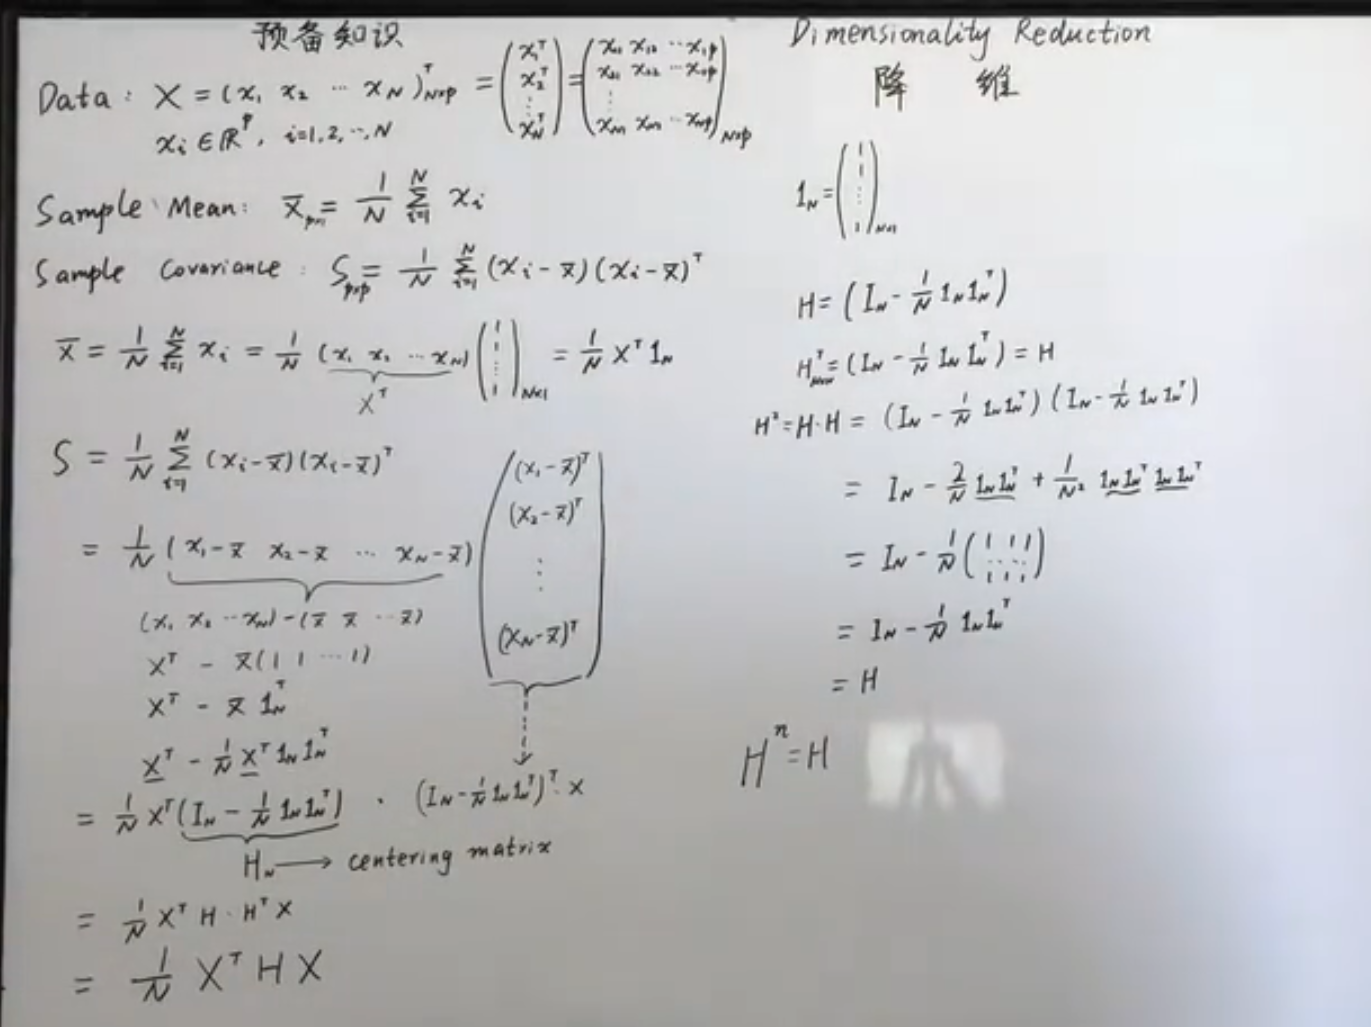 预备知识
Data: X = (x₁ x₂ ⋯ x_N)ᵀ_{N×p} = (x₁ᵀ x₂ᵀ ⋮ x_Nᵀ) = (x₁₁ x₁₂ ⋯ x₁p x₂₁ x₂₂ ⋯ x₂p ⋮ x_N₁ x_N₂ ⋯ x_Np)_{N×p}
xᵢ ∈ ℝᵖ, i=1,2,⋯,N
Sample Mean: x̄_{p×1} = 1/N Σ_{i=1}^N xᵢ
Sample Covariance: S_{p×p} = 1/N Σ_{i=1}^N (xᵢ - x̄)(xᵢ - x̄)ᵀ
x̄ = 1/N Σ_{i=1}^N xᵢ = 1/N (x₁ x₂ ⋯ x_N) (1 1 ⋮ 1)_{N×1} = 1/N Xᵀ 1_N
Xᵀ
S = 1/N Σ_{i=1}^N (xᵢ - x̄)(xᵢ - x̄)ᵀ
= 1/N (x₁-x̄ x₂-x̄ ⋯ x_N-x̄) ((x₁-x̄)ᵀ (x₂-x̄)ᵀ ⋮ (x_N-x̄)ᵀ)
(x₁ x₂ ⋯ x_N) - (x̄ x̄ ⋯ x̄)
Xᵀ - x̄(1 1 ⋯ 1)
Xᵀ - x̄ 1_Nᵀ
Xᵀ - 1/N Xᵀ 1_N 1_Nᵀ
= 1/N Xᵀ(I_N - 1/N 1_N 1_Nᵀ) · (I_N - 1/N 1_N 1_Nᵀ)ᵀ · X
H_N → centering matrix
= 1/N Xᵀ H · Hᵀ X
= 1/N Xᵀ H X
Dimensionality Reduction
降 维
1_N = (1 1 ⋮ 1)_{N×1}
H = (I_N - 1/N 1_N 1_Nᵀ)
Hᵀ_{N×N} = (I_N - 1/N 1_N 1_Nᵀ) = H
H² = H·H = (I_N - 1/N 1_N 1_Nᵀ)(I_N - 1/N 1_N 1_Nᵀ)
= I_N - 2/N 1_N 1_Nᵀ + 1/N² 1_N 1_Nᵀ 1_N 1_Nᵀ
= I_N - 1/N (1 1 1 ⋯ 1 1 1)
= I_N - 1/N 1_N 1_Nᵀ
= H
Hⁿ = H